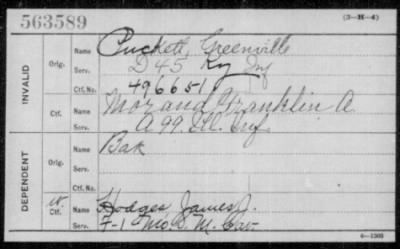 563589
(3-H-4)
INVALID
Orig.
Name Puckett, Greenville
Serv. D 45 Ky Inf
Ctf. No. 496651
Ctf.
Name Morand Franklin A
Serv. A 99. Ill. Inf.
DEPENDENT
Orig.
Name Bak
Serv.
Ctf. No.
W.
Ctf.
Name Hodges James J.
Serv. F-1 Mo. S. M. Cav.
6-1205